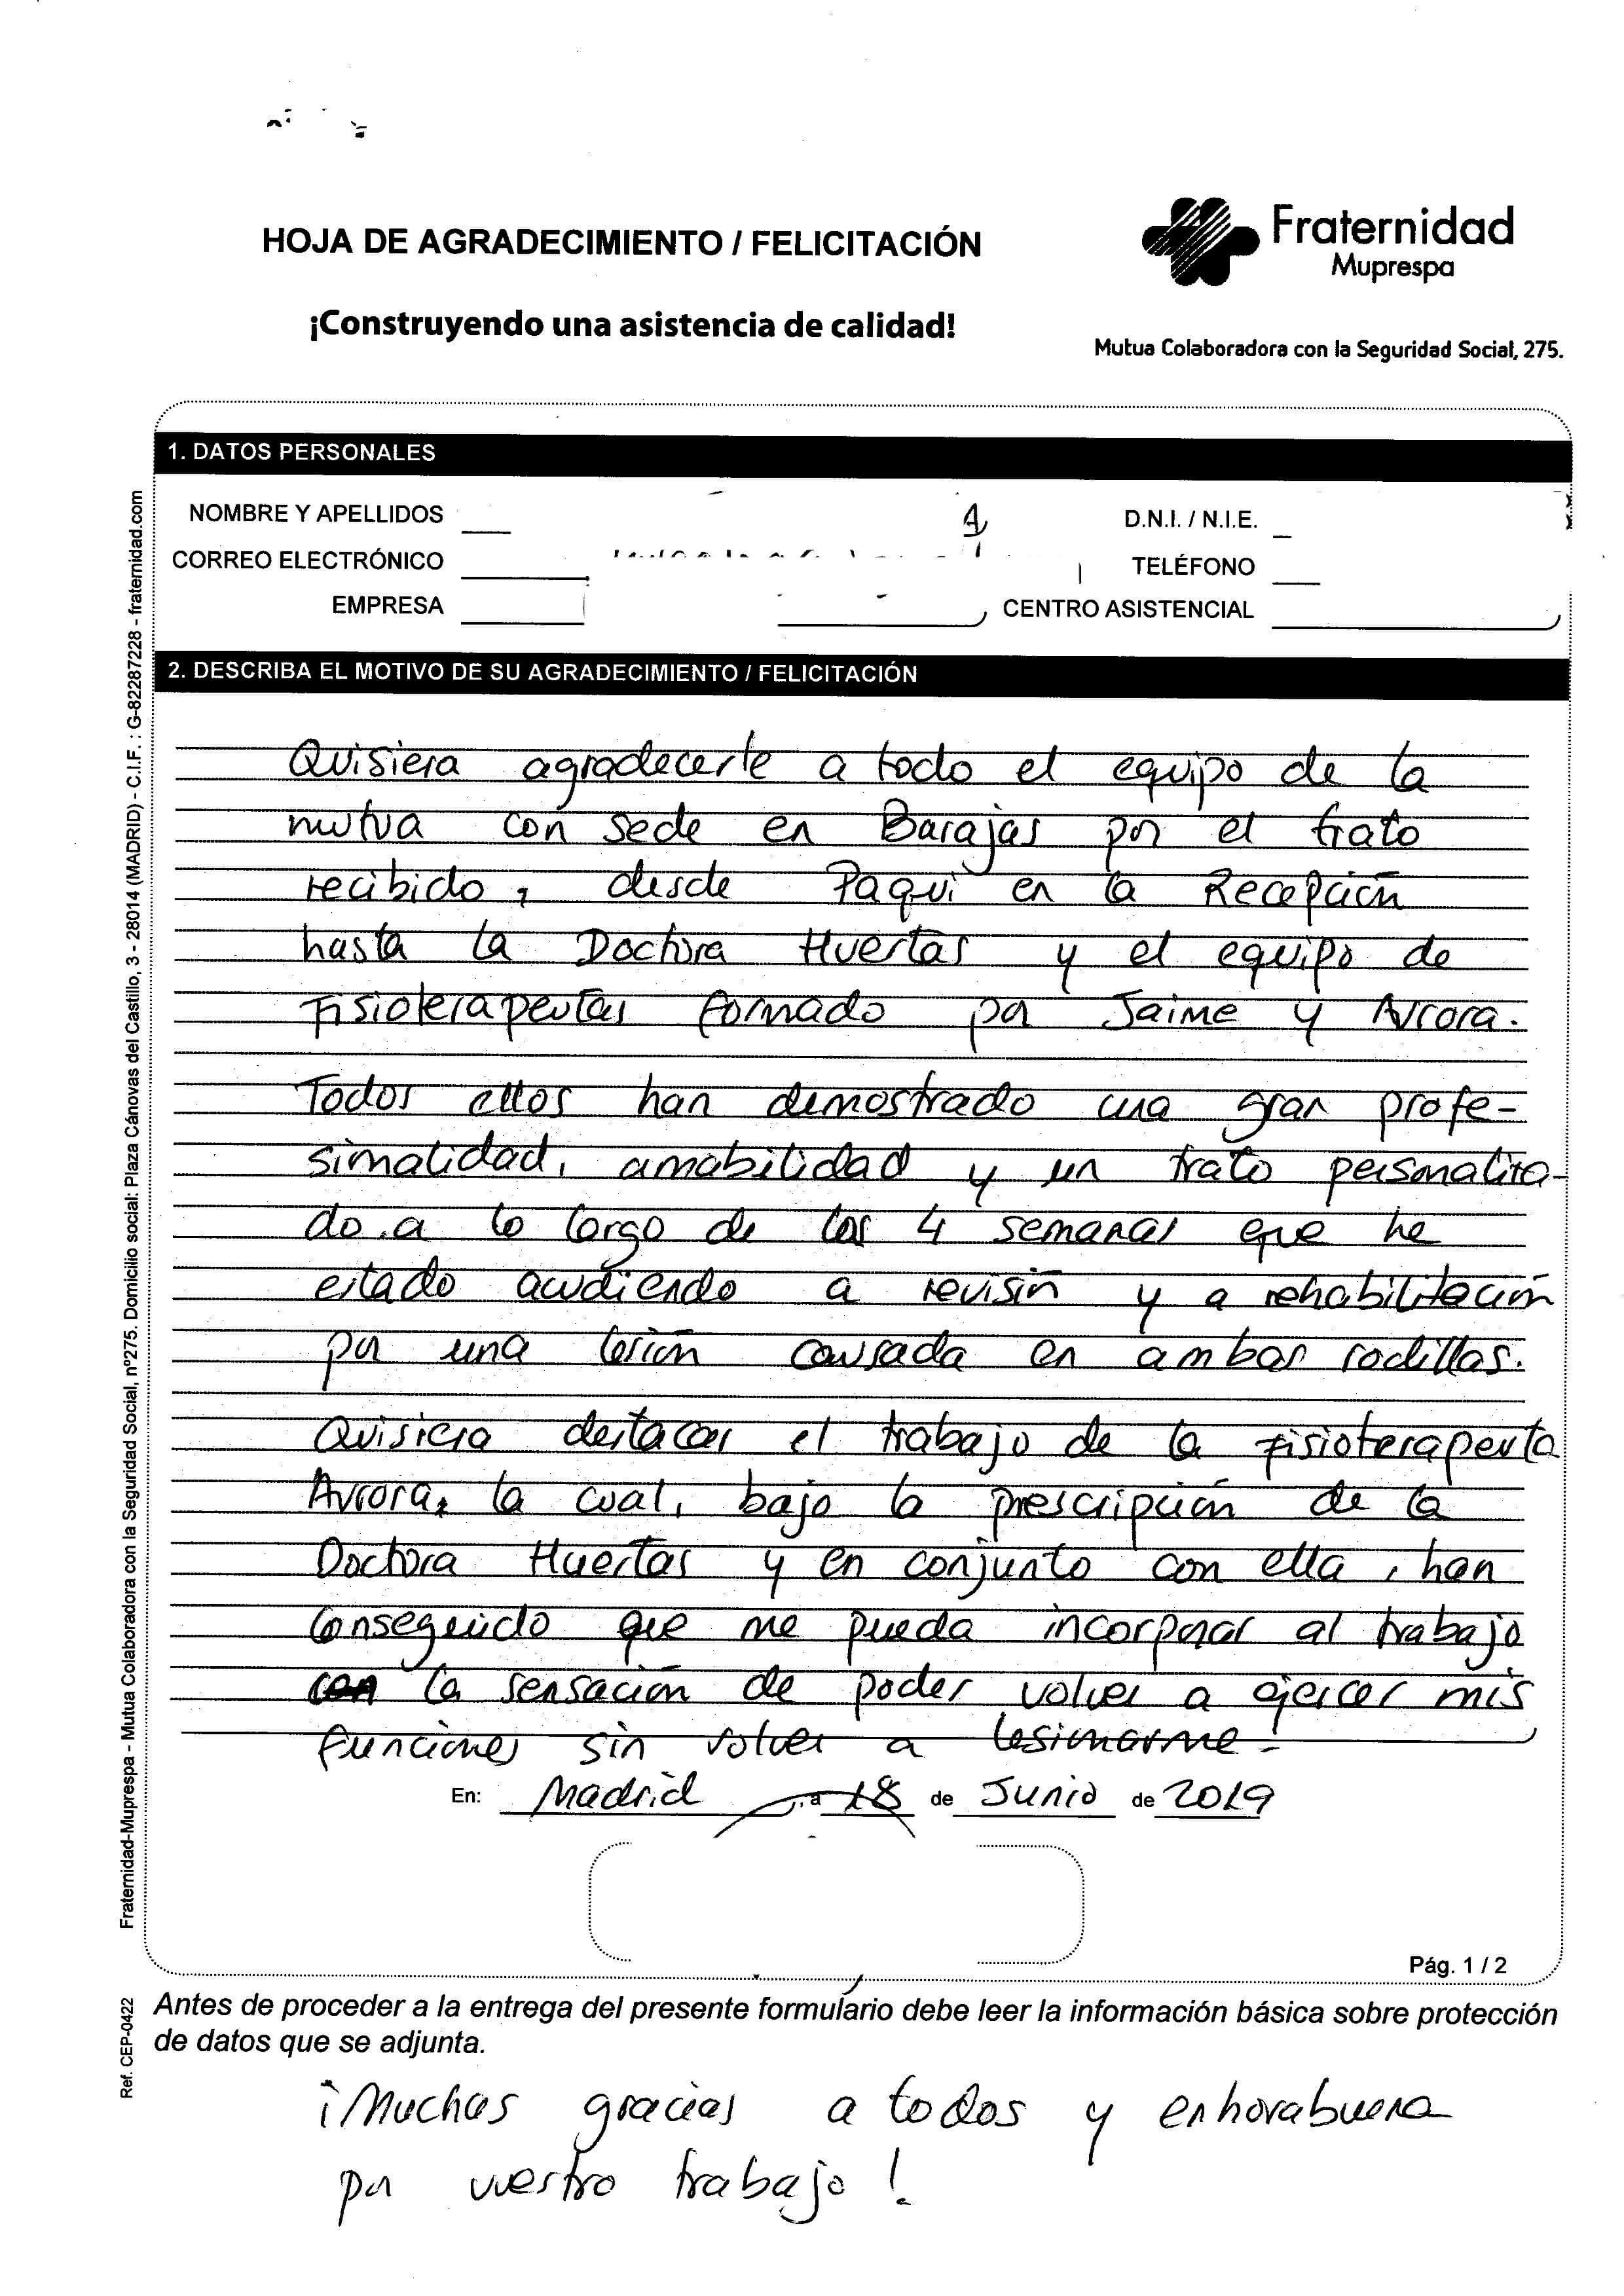 HOJA DE AGRADECIMIENTO / FELICITACIÓN
¡Construyendo una asistencia de calidad!
Fraternidad
Muprespa
Mutua Colaboradora con la Seguridad Social, 275.
1. DATOS PERSONALES
NOMBRE Y APELLIDOS
D.N.I. / N.I.E.
CORREO ELECTRÓNICO
TELÉFONO
EMPRESA
CENTRO ASISTENCIAL
2. DESCRIBA EL MOTIVO DE SU AGRADECIMIENTO / FELICITACIÓN
Quisiera agradecerle a todo el equipo de la
mutua con sede en Barajas por el trato
recibido, desde Paqui en la Recepción
hasta la Doctora Huertas y el equipo de
Fisioterapeutas formado por Jaime y Aurora.
Todos ellos han demostrado una gran profe-
sionalidad, amabilidad y un trato personaliza-
do a lo largo de las 4 semanas que he
estado acudiendo a revisión y a rehabilitación
por una lesión causada en ambas rodillas.
Quisiera destacar el trabajo de la Fisioterapeuta
Aurora, la cual, bajo la prescripción de la
Doctora Huertas y en conjunto con ella, han
conseguido que me pueda incorporar al trabajo
con la sensación de poder volver a ejercer mis
funciones sin volver a lesionarme.
En: Madrid, a 18 de Junio de 2019
Pág. 1 / 2
Antes de proceder a la entrega del presente formulario debe leer la información básica sobre protección
de datos que se adjunta.
¡Muchas gracias a todos y enhorabuena
por vuestro trabajo!
Fraternidad-Muprespa - Mutua Colaboradora con la Seguridad Social, nº275. Domicilio social: Plaza Cánovas del Castillo, 3 - 28014 (MADRID) - C.I.F. : G-82287228 - fraternidad.com
Ref. CEP-0422